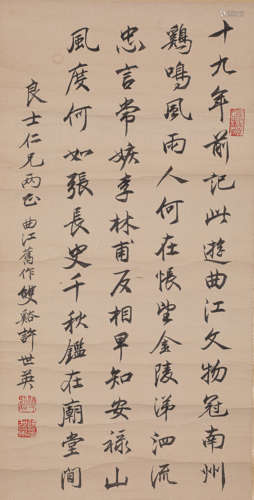 十九年前記此遊曲江文物冠南州
鷄鳴風雨人何在悵望金陵涕泗流
忠言常嫉李林甫反相早知安祿山
風度何如張長史千秋鑑在廟堂間
良士仁兄兩正 曲江舊作 雙谿許世英